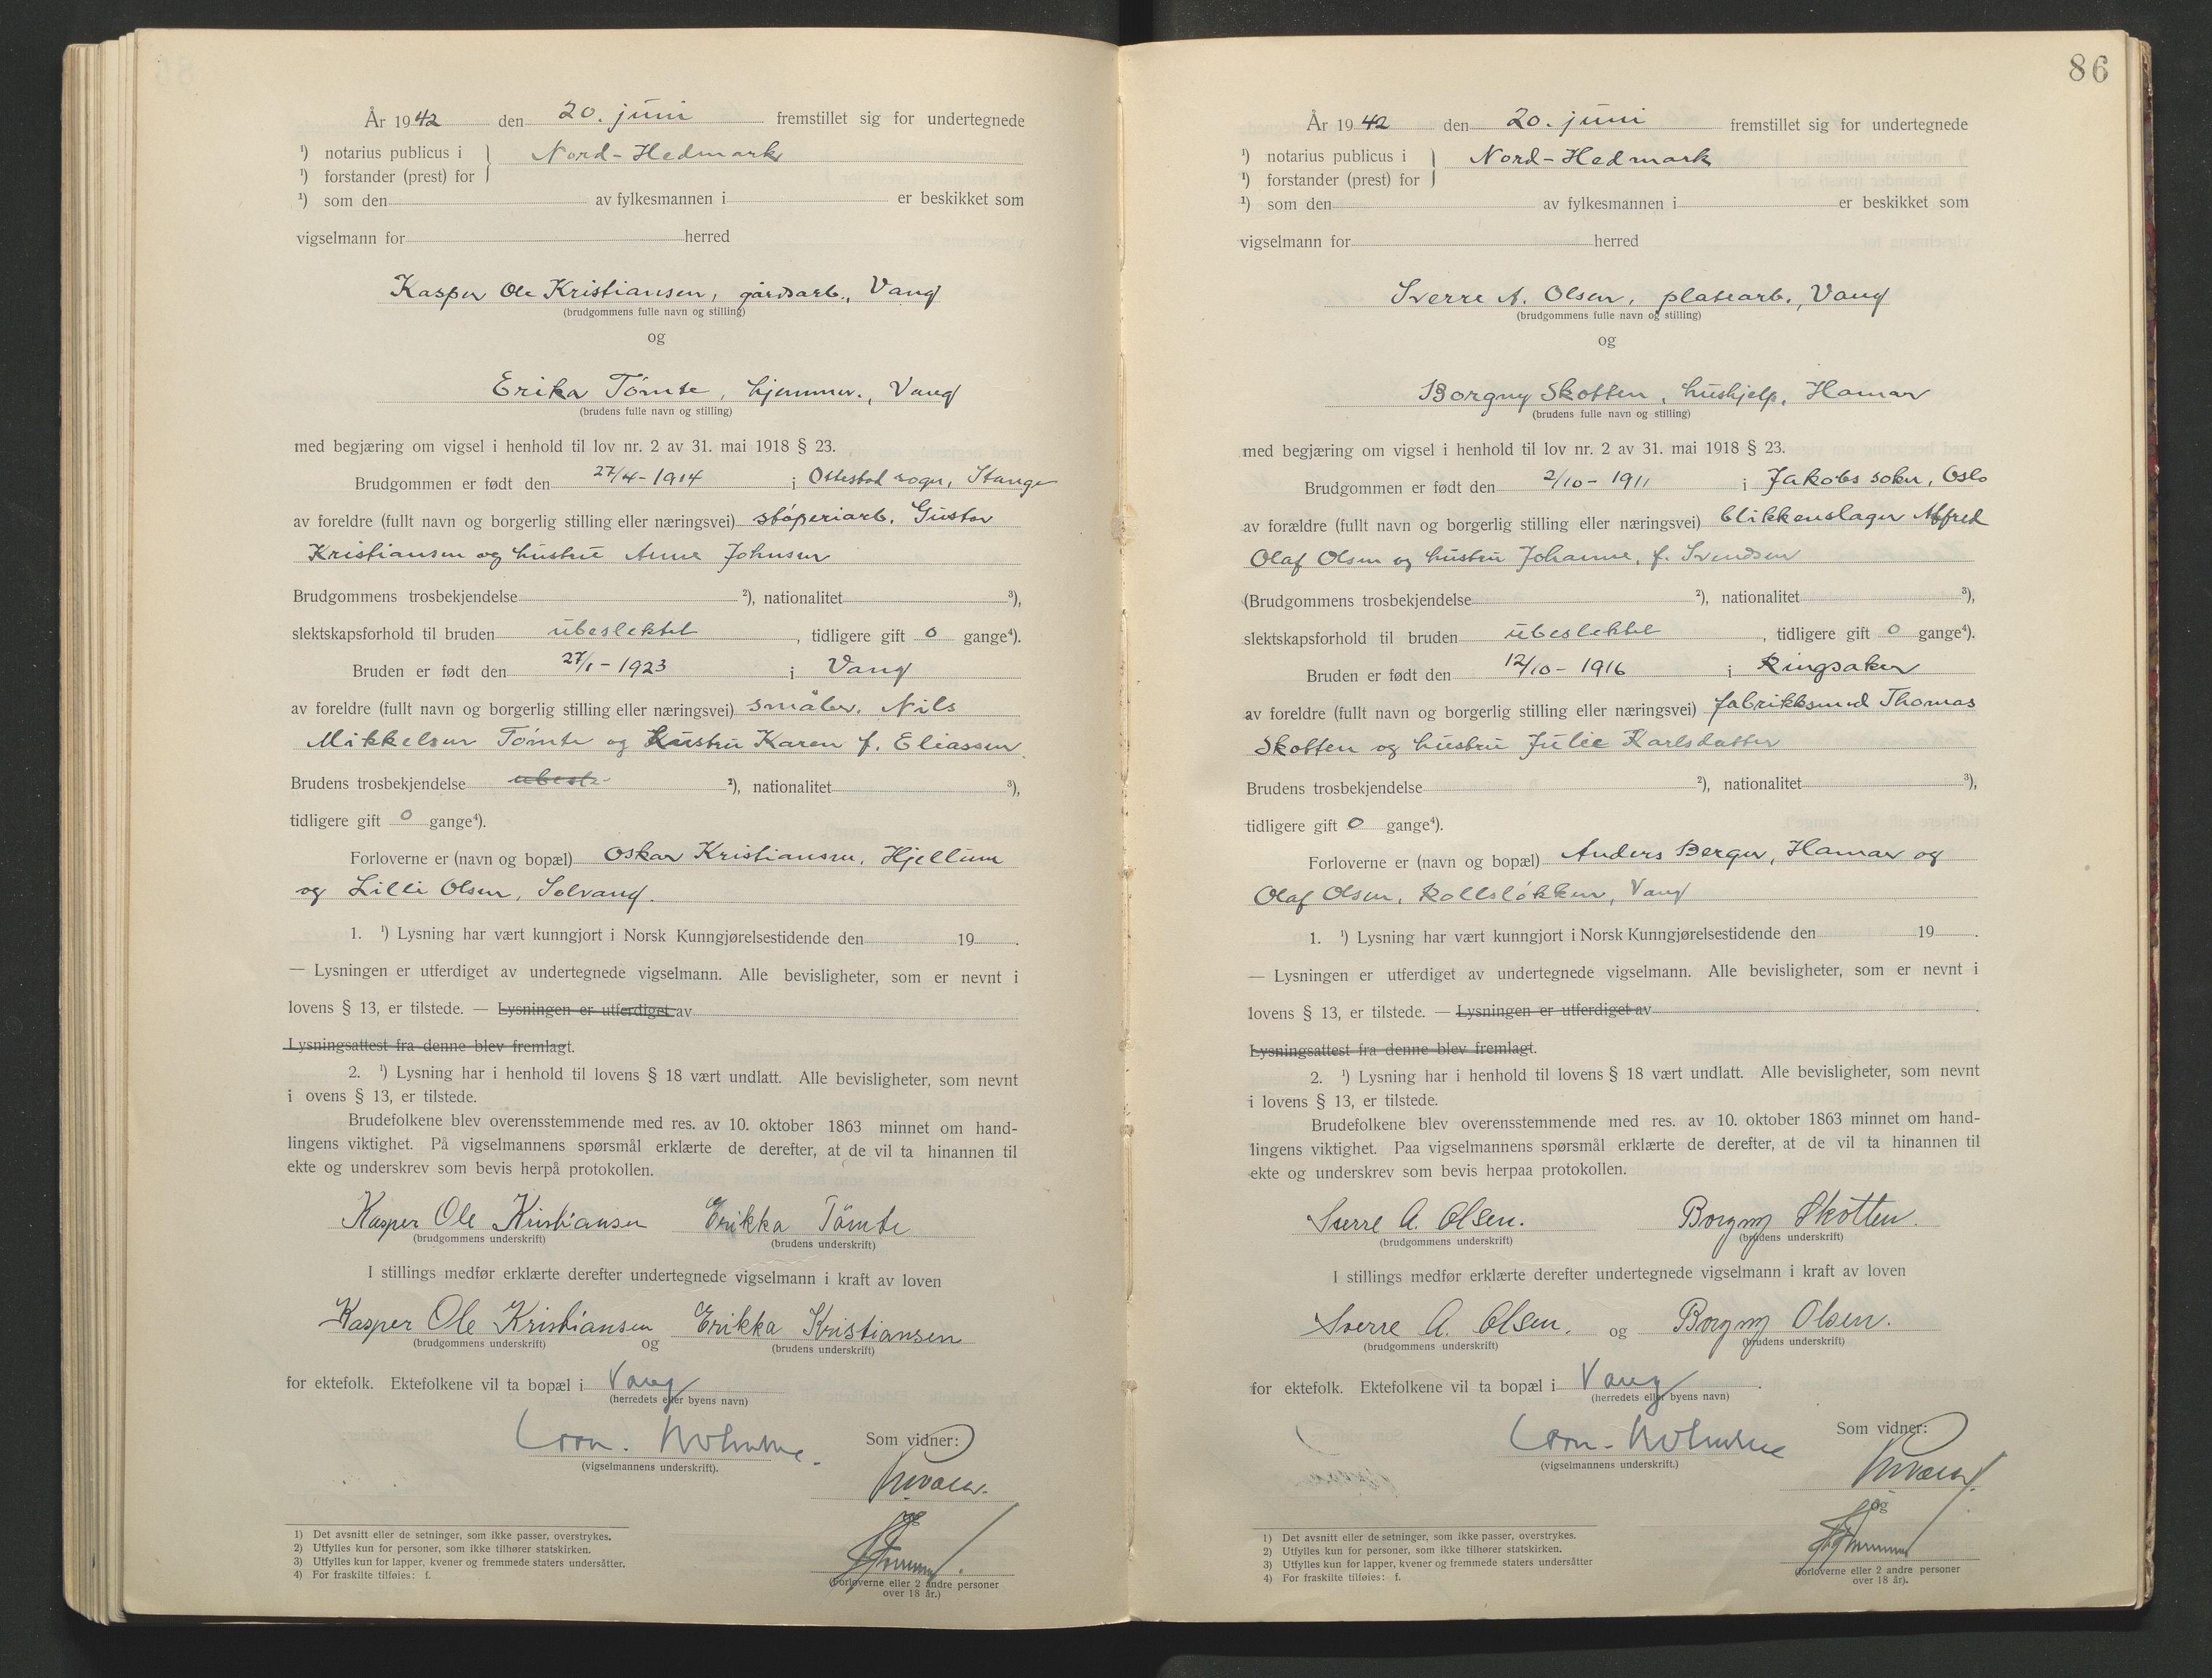 År 1942 den 20. juni fremstillet sig for undertegnede
¹) notarius publicus i } Nord-Hedmark
¹) forstander (prest) for
¹) som den av fylkesmannen i er beskikket som
vigselmann for herred
Kasper Ole Kristiansen, gårdsarb., Vang
(brudgommens fulle navn og stilling)
og
Erika Tømte, hjemmev., Vang
(brudens fulle navn og stilling)
med begjæring om vigsel i henhold til lov nr. 2 av 31. mai 1918 § 23.
Brudgommen er født den 27/4 - 1914 i Ottestad sogn, Stange
av foreldre (fullt navn og borgerlig stilling eller næringsvei) støperiarb. Gustav
Kristiansen og hustru Anne Johnsen
Brudgommens trosbekjendelse ²), nationalitet ³),
slektskapsforhold til bruden ubeslektet, tidligere gift 0 gange⁴).
Bruden er født den 27/1 - 1923 i Vang
av foreldre (fullt navn og borgerlig stilling eller næringsvei) småbr. Nils
Mikkelsen Tømte og hustru Karen f. Eliassen
Brudens trosbekjendelse ubesl. ²), nationalitet ³),
tidligere gift 0 gange⁴).
Forloverne er (navn og bopæl) Oskar Kristiansen, Hjellum
og Lilli Olsen, Solvang.
1. ¹) Lysning har vært kunngjort i Norsk Kunngjørelsestidende den 19 .
— Lysningen er utferdiget av undertegnede vigselmann. Alle bevisligheter, som er nevnt i
lovens § 13, er tilstede. — Lysningen er utferdiget av
Lysningsattest fra denne blev fremlagt.
2. ¹) Lysning har i henhold til lovens § 18 vært undlatt. Alle bevisligheter, som nevnt
i ovens § 13, er tilstede.
Brudefolkene blev overensstemmende med res. av 10. oktober 1863 minnet om hand-
lingens viktighet. På vigselmannens spørsmål erklærte de derefter, at de vil ta hinannen til
ekte og underskrev som bevis herpå protokollen.
Kasper Ole Kristiansen Erikka Tømte
(brudgommens underskrift) (brudens underskrift)
I stillings medfør erklærte derefter undertegnede vigselmann i kraft av loven
Kasper Ole Kristiansen og Erikka Kristiansen
(brudgommens underskrift) (brudens underskrift)
for ektefolk. Ektefolkene vil ta bopæl i Vang
(herredets eller byens navn)
Som vidner:
(vigselmannens underskrift).
og
(Forloverne eller 2 andre personer
over 18 år.)
1) Det avsnitt eller de setninger, som ikke passer, overstrykes.
2) Utfylles kun for personer, som ikke tilhører statskirken.
3) Utfylles kun for lapper, kvener og fremmede staters undersåtter.
4) For fraskilte tilføies: f.
86
År 1942 den 20. juni fremstillet sig for undertegnede
¹) notarius publicus i } Nord-Hedmark
¹) forstander (prest) for
¹) som den av fylkesmannen i er beskikket som
vigselmann for herred
Sverre A. Olsen, platearb., Vang
(brudgommens fulle navn og stilling)
og
Borgny Skotten, hushjelp, Hamar
(brudens fulle navn og stilling)
med begjæring om vigsel i henhold til lov nr. 2 av 31. mai 1918 § 23.
Brudgommen er født den 2/10 - 1911 i Jakobs sokn, Oslo
av forældre (fullt navn og borgerlig stilling eller næringsvei) blikkenslager Alfred
Olaf Olsen og hustru Johanne, f. Svendsen
(Brudgommens trosbekjendelse ²), nationalitet ³),
slektskapsforhold til bruden ubeslektet, tidligere gift 0 gange⁴).
Bruden er født den 12/10 - 1916 i Ringsaker
av foreldre (fullt navn og borgerlig stilling eller næringsvei) fabrikksmed Thomas
Skotten og hustru Julie Karlsdatter
Brudens trosbekjendelse ²), nationalitet ³),
tidligere gift 0 gange⁴).
Forloverne er (navn og bopæl) Anders Berger, Hamar og
Olaf Olsen, Rollsløkken, Vang
1. ¹) Lysning har vært kunngjort i Norsk Kunngjørelsestidende den 19 .
— Lysningen er utferdiget av undertegnede vigselmann. Alle bevisligheter, som er nevnt i
lovens § 13, er tilstede. — Lysningen er utferdiget av
Lysningsattest fra denne blev fremlagt.
2. ¹) Lysning har i henhold til lovens § 18 vært undlatt. Alle bevisligheter, som nevnt
i lovens § 13, er tilstede.
Brudefolkene blev overensstemmende med res. av 10. oktober 1863 minnet om hand-
lingens viktighet. Paa vigselmannens spørsmål erklærte de derefter, at de vil ta hinannen til
ekte og underskrev som bevis herpaa protokollen.
Sverre A. Olsen. Borgny Skotten.
(brudgommens underskrift) (brudens underskrift)
I stillings medfør erklærte derefter undertegnede vigselmann i kraft av loven
Sverre A. Olsen. og Borgny Olsen.
(brudgommens underskrift) (brudens underskrift)
for ektefolk. Ektefolkene vil ta bopæl i Vang.
(herredets eller byens navn)
Som vidner:
(vigselmannens underskrift.)
og
(forloverne eller 2 andre personer
over 18 år).
1) Det avsnitt eller de setninger, som ikke passer, overstrykes.
2) Utfylles kun for personer, som ikke tilhører statskirken.
3) Utfylles kun for lapper, kvener og fremmede staters undersåtter
4) For fraskilte tilføies: f.